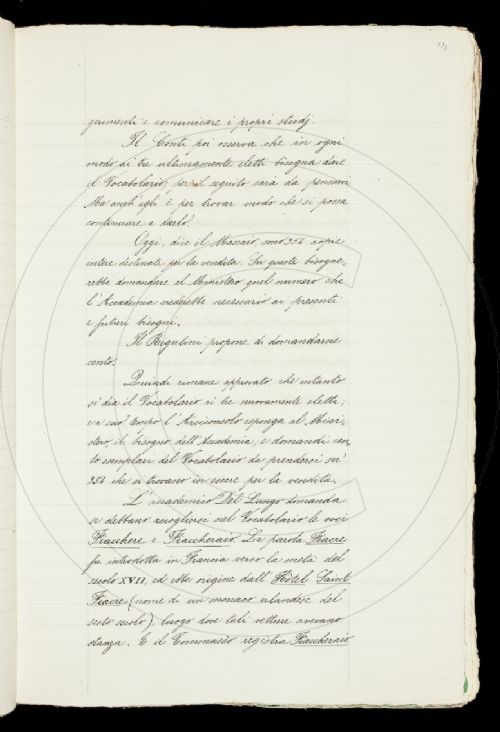 gerimenti e comunicare i propri studj.
Il Conti poi osserva che in ogni
modo ai tre ultimamente eletti bisogna dare
il Vocabolario; per il seguito sarà da pensarvi
Ma anch'egli è per trovar modo che si possa
continuare a darlo.
Oggi, dice il Massaio, sono 354 copie
intere destinate per la vendita. Su queste bisogne-
rebbe domandare al Ministero quel numero che
l'Accademia crederebbe necessario ai presenti
e futuri bisogni.
Il Rigutini propone di domandarne
cento.
Quindi rimane approvato che intanto
si dia il Vocabolario ai tre nuovamente eletti;
e a suo tempo l'Arciconsolo esponga al Mini-
stero, il bisogno dell'Accademia, e domandi cen
to esemplari del Vocabolario da prendersi su'
354 che si trovano in essere per la vendita.
L'accademico Del Lungo domanda
se debbano accogliersi nel Vocabolario le voci
Fiacchere e Fiaccheraio. La parola Fiacre
fu introdotta in Francia verso la metà del
secolo XVII, ed ebbe origine dall'Hôtel Saint
Fiacre (nome di un monaco irlandese del
sesto secolo), luogo dove tali vetture avevano
stanza. E il Tommaseo registra Fiaccheraio